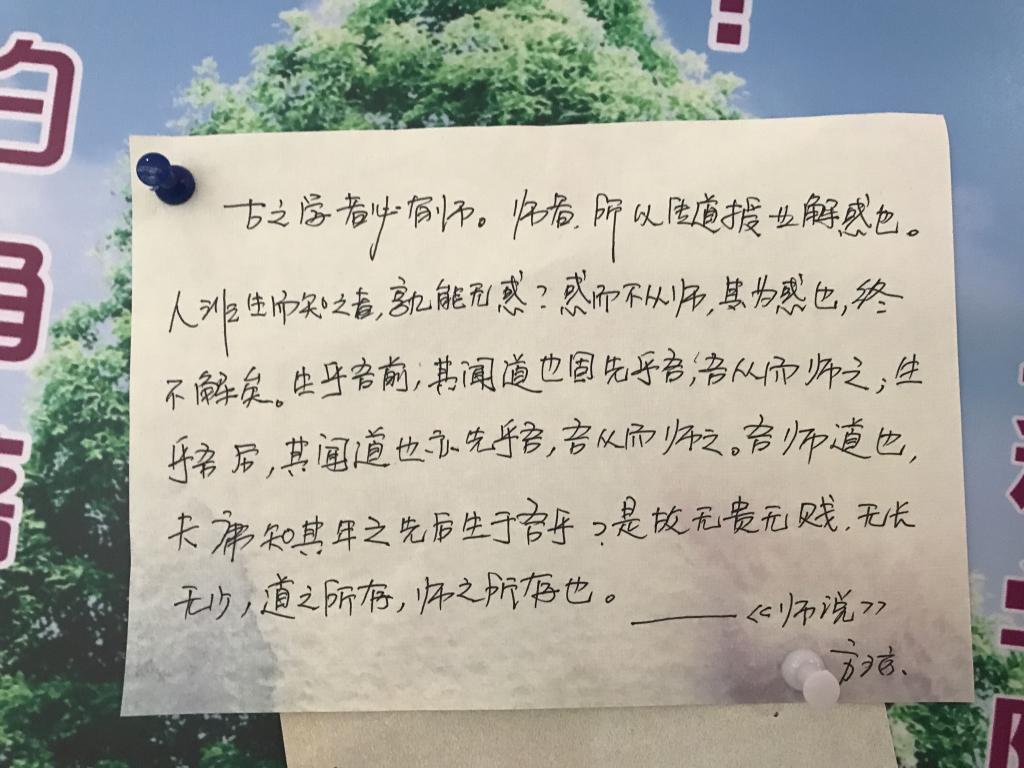 古之学者必有师。师者,所以传道授业解惑也。
人非生而知之者,孰能无惑?惑而不从师,其为惑也,终
不解矣。生乎吾前,其闻道也固先乎吾,吾从而师之;生
乎吾后,其闻道也亦先乎吾,吾从而师之。吾师道也,
夫庸知其年之先后生于吾乎?是故无贵无贱.无长
无少,道之所存,师之所存也。
——《师说》